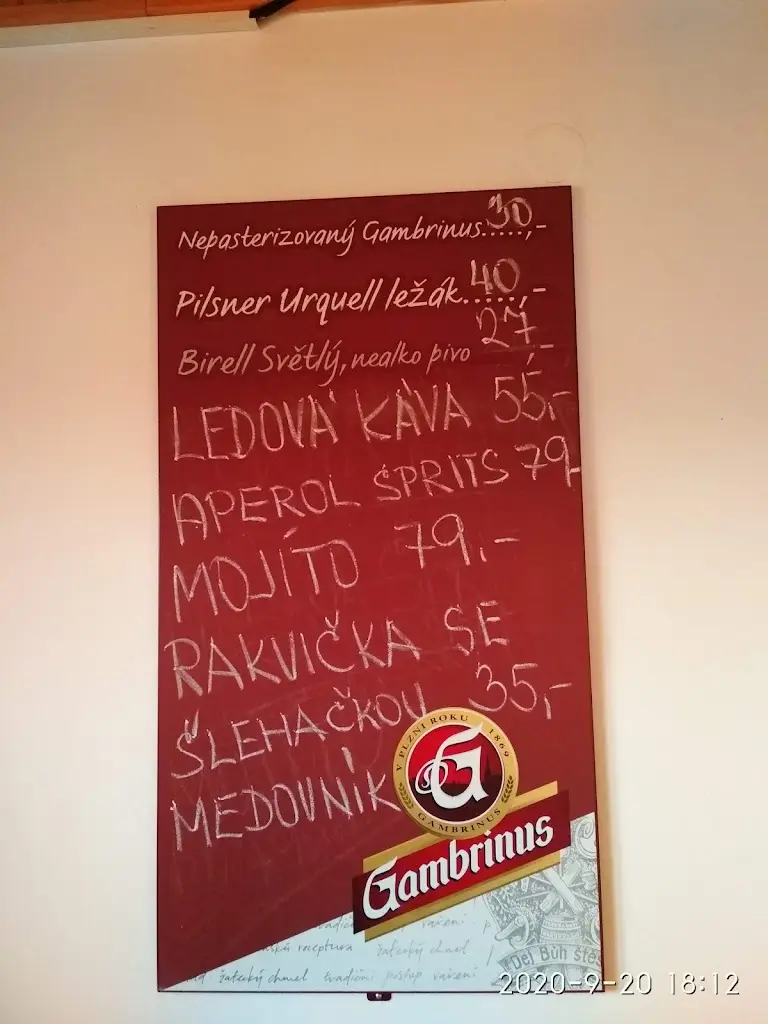 Nepasterizovaný Gambrinus......,- 30
Pilsner Urquell ležák......,- 40
Birell Světlý, nealko pivo 27,-
LEDOVÁ KÁVA 55,-
APEROL ŠPRITS 79,-
MOJÍTO 79,-
RAKVIČKA SE
ŠLEHAČKOU 35,-
MEDOVNÍK
V PLZNI ROKU 1869
G
GAMBRINUS
Gambrinus
tradiční vaření
receptura žatecký chmel
žatecký chmel tradiční postup vaření
Dej Bůh
2020-9-20 18:12